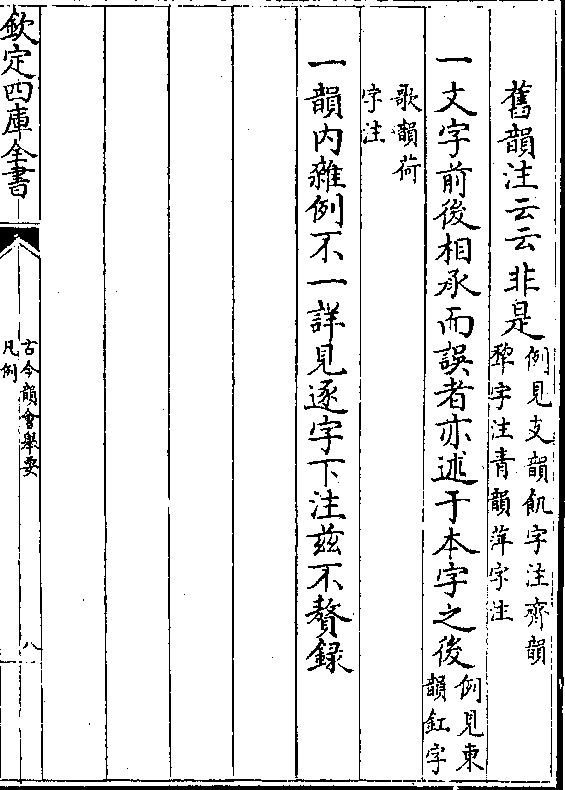 舊韻注云云非是例見支韻飢字注齊韻
犂字注青韻萍字注
一文字前後相承而誤者亦述于本字之後例見東
韻釭字
歌韻荷
字注
一韻內雜例不一詳見逐字下注茲不贅録
欽定四庫全書
古今韻會舉要
凡例
八